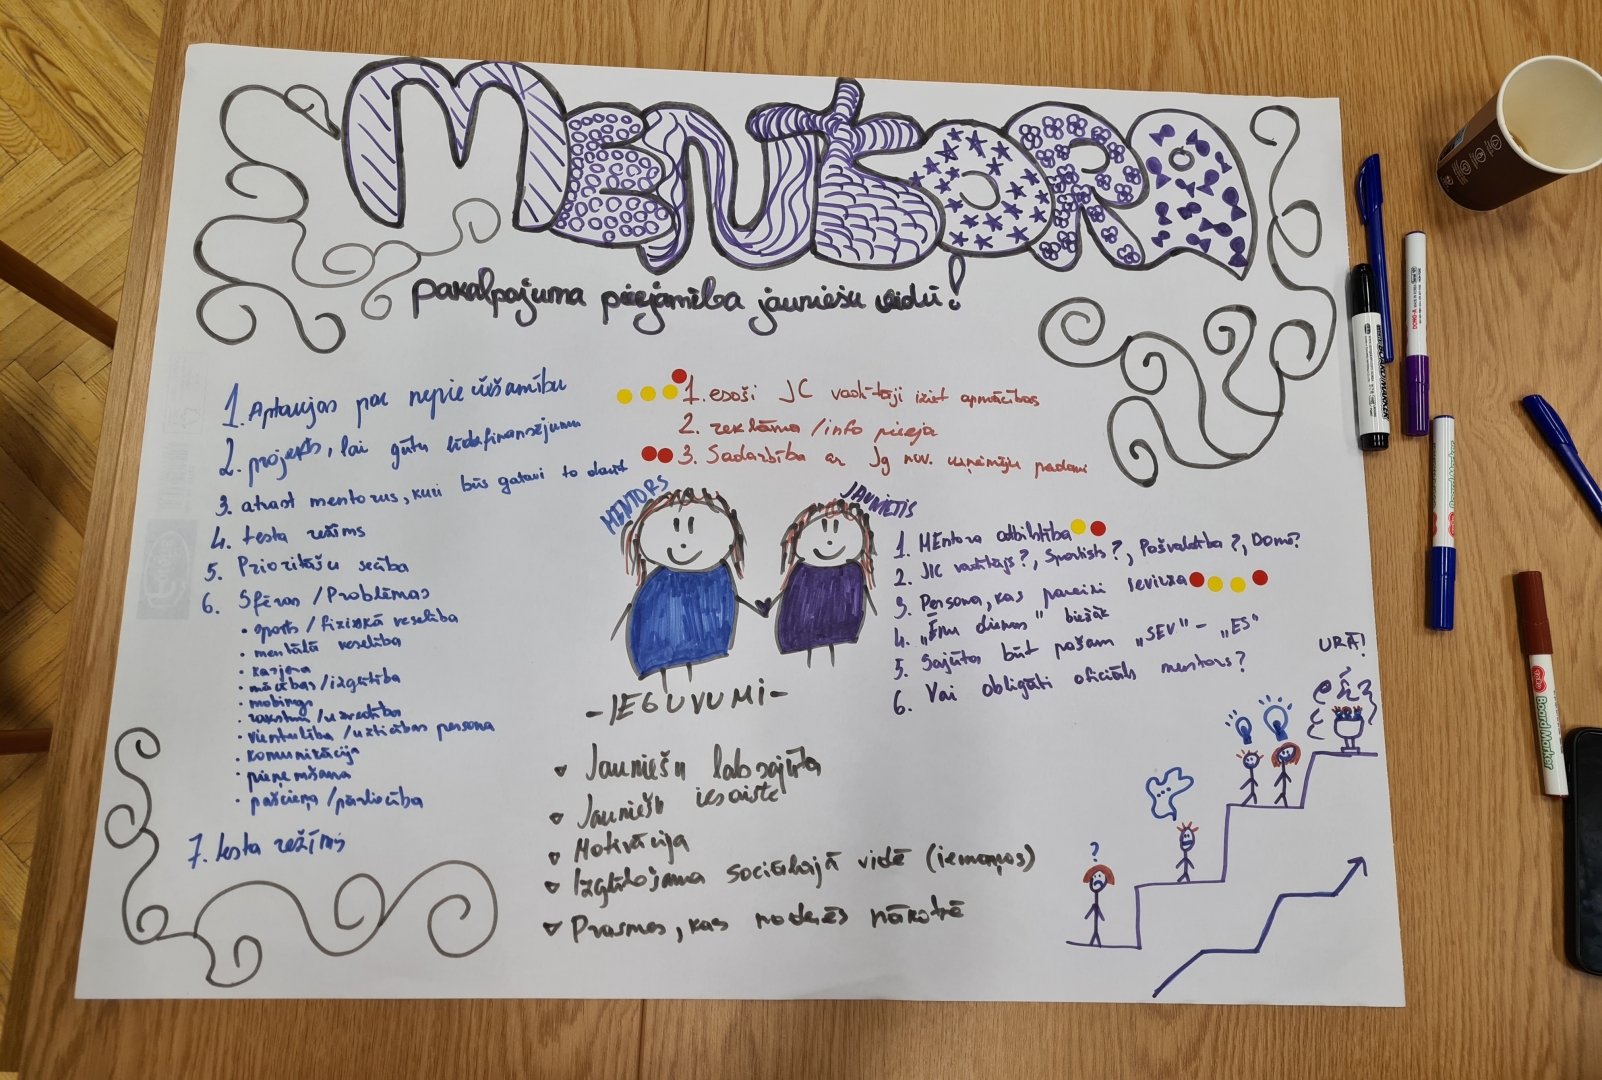 MENtORA
pakalpojuma pieejamība jauniešu vidū!
1. Aptaujas par nepieciešamību
2. projekts, lai gūtu līdzfinansējumu
3. atrast mentorus, kuri būs gatavi to darīt
4. testa režīms
5. Prioritāšu secība
6. Sfēras / Problēmas
• sports / fiziskā veselība
• mentālā veselība
• karjera
• mācības / izglītība
• mobings
• raksturs / uzvedība
• vientulība / uzticības persona
• komunikācija
• pieņemšana
• pašcieņa / pārliecība
7. testa režīms
1. esoši JC vadītāji iziet apmācības
2. reklāma / info pieeja
3. Sadarbība ar Jg nov. uzņēmēju padomi
MENTORS
JAUNIETIS
1. MEntora atbilstība
2. JIC vadītājs?, Sportists?, Pašvaldība?, Dome?
3. Persona, kas pareizi ievirza
4. "Ēnu dienas" biežāk
5. Sajūtas būt pašam "SEV" - "ES"
6. Vai obligāti oficiāls mentors?
- IEGUVUMI -
Jauniešu labsajūta
Jauniešu iesaiste
Motivācija
Izglītojama sociālajā vidē (iemaņas)
Prasmes, kas noderēs nākotnē
URĀ!
?
BOARD MARKER
Board Marker